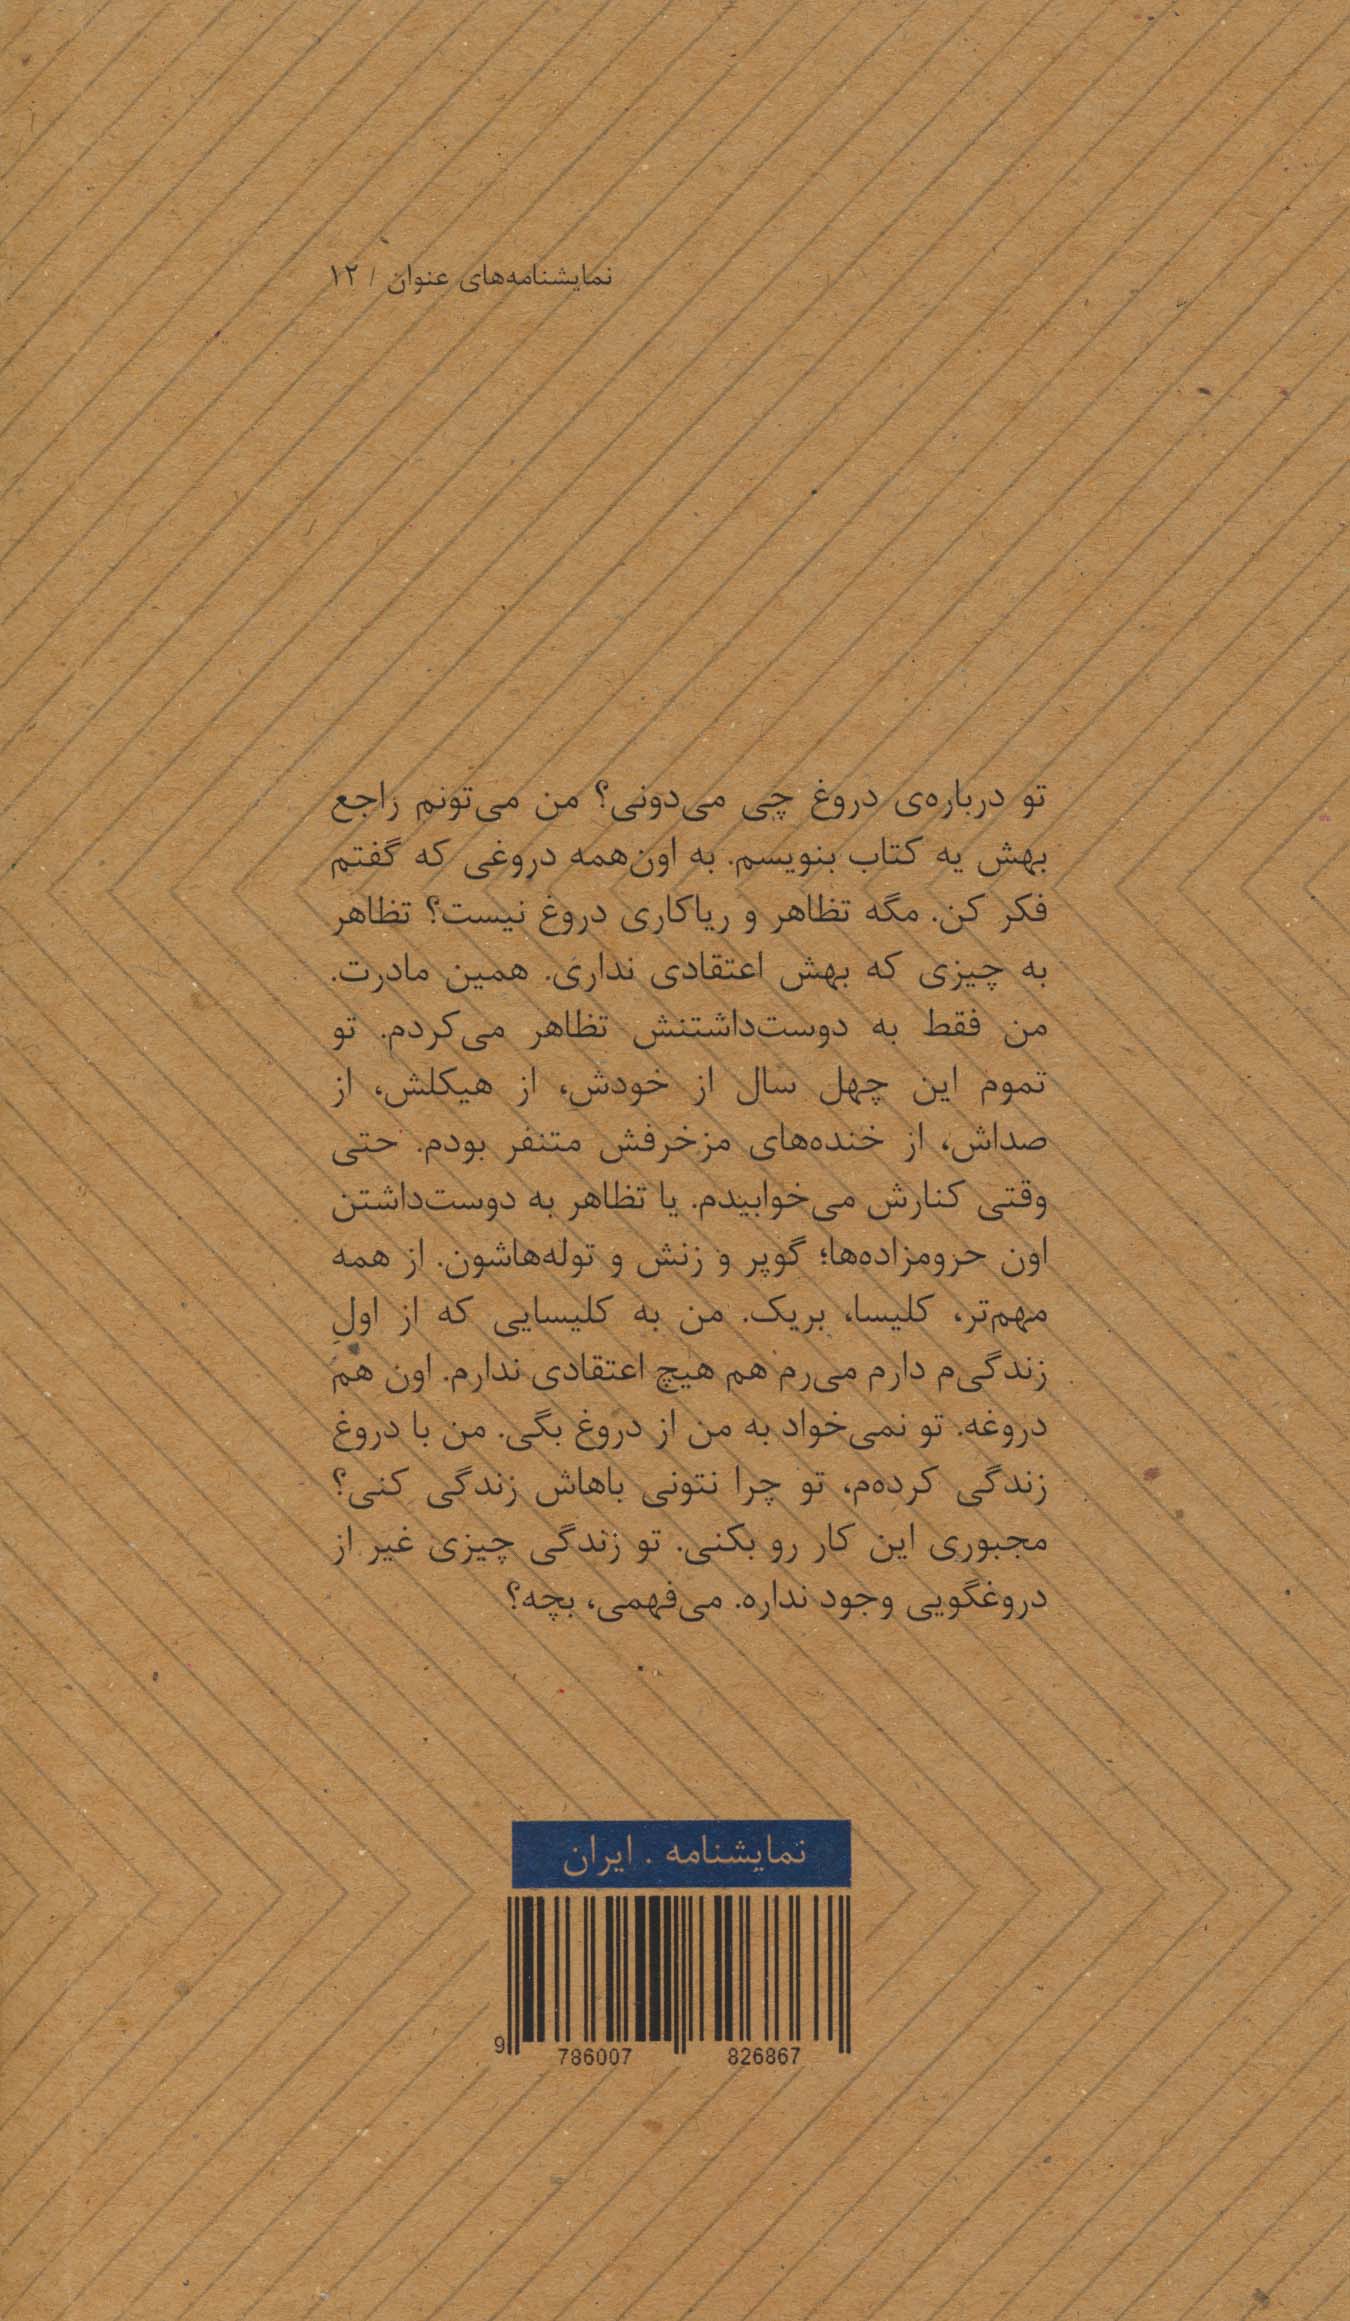 نمایشنامه‌های عنوان / ۱۲
تو درباره‌ی دروغ چی می‌دونی؟ من می‌تونم راجع
بهش یه کتاب بنویسم. به اون‌همه دروغی که گفتم
فکر کن. مگه تظاهر و ریاکاری دروغ نیست؟ تظاهر
به چیزی که بهش اعتقادی نداری. همین مادرت.
من فقط به دوست‌داشتنش تظاهر می‌کردم. تو
تموم این چهل سال از خودش، از هیکلش، از
صداش، از خنده‌های مزخرفش متنفر بودم. حتی
وقتی کنارش می‌خوابیدم. یا تظاهر به دوست‌داشتن
اون حرومزاده‌ها؛ گوپر و زنش و توله‌هاشون. از همه
مهم‌تر، کلیسا، بریک. من به کلیسایی که از اولِ
زندگی‌م دارم می‌رم هم هیچ اعتقادی ندارم. اون هم
دروغه. تو نمی‌خواد به من از دروغ بگی. من با دروغ
زندگی کرده‌م، تو چرا نتونی باهاش زندگی کنی؟
مجبوری این کار رو بکنی. تو زندگی چیزی غیر از
دروغگویی وجود نداره. می‌فهمی، بچه؟
نمایشنامه . ایران
9 786007 826867